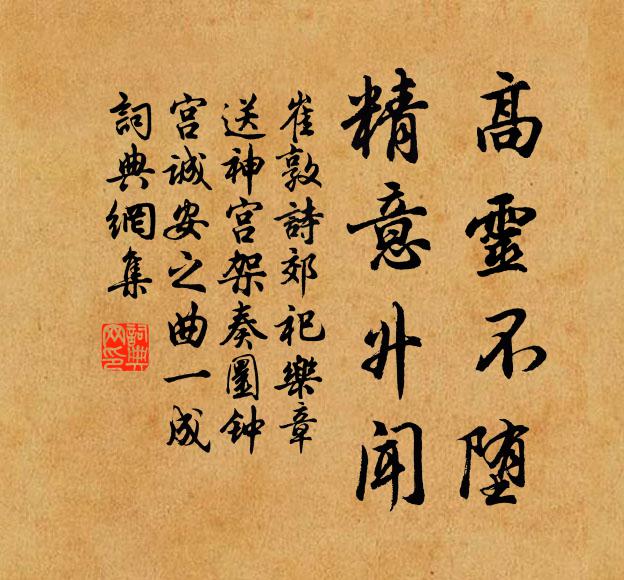 高靈不堕
精意升聞
崔敦詩郊祀樂章
送神宮架奏圜钟
宮诚安之曲一成
詞典網集
詞典網印